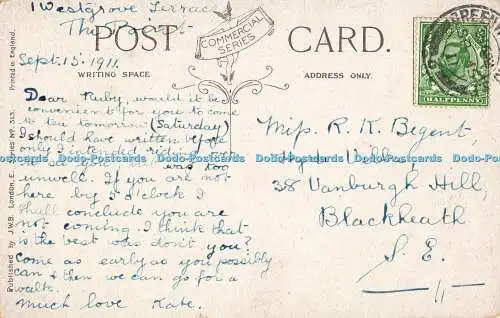 1 Westgrove Terrace
The Point
Sept. 15. 1911.
POST CARD.
COMMERCIAL
SERIES
WRITING SPACE
ADDRESS ONLY.
Printed in England.
Published by J.W.B. London, E. Series No. 313.
HALFPENNY
Dear Ruby, would it be
convenient for you to come
to tea tomorrow (Saturday)
I should have written before
only I intended
was too
unwell. If you are not
here by 3 o'clock I
shall conclude you are
not coming. I think that
is the best way don't you?
Come as early as you possibly
can & then we can go for a
walk.
Much love Kate.
Miss R. K. Begent,
Hyde
38 Vanburgh Hill,
Blackheath
S. E.
Dodo-Postcards Dodo-Postcards Dodo-Postcards Dodo-Postcards Dodo-Postcards